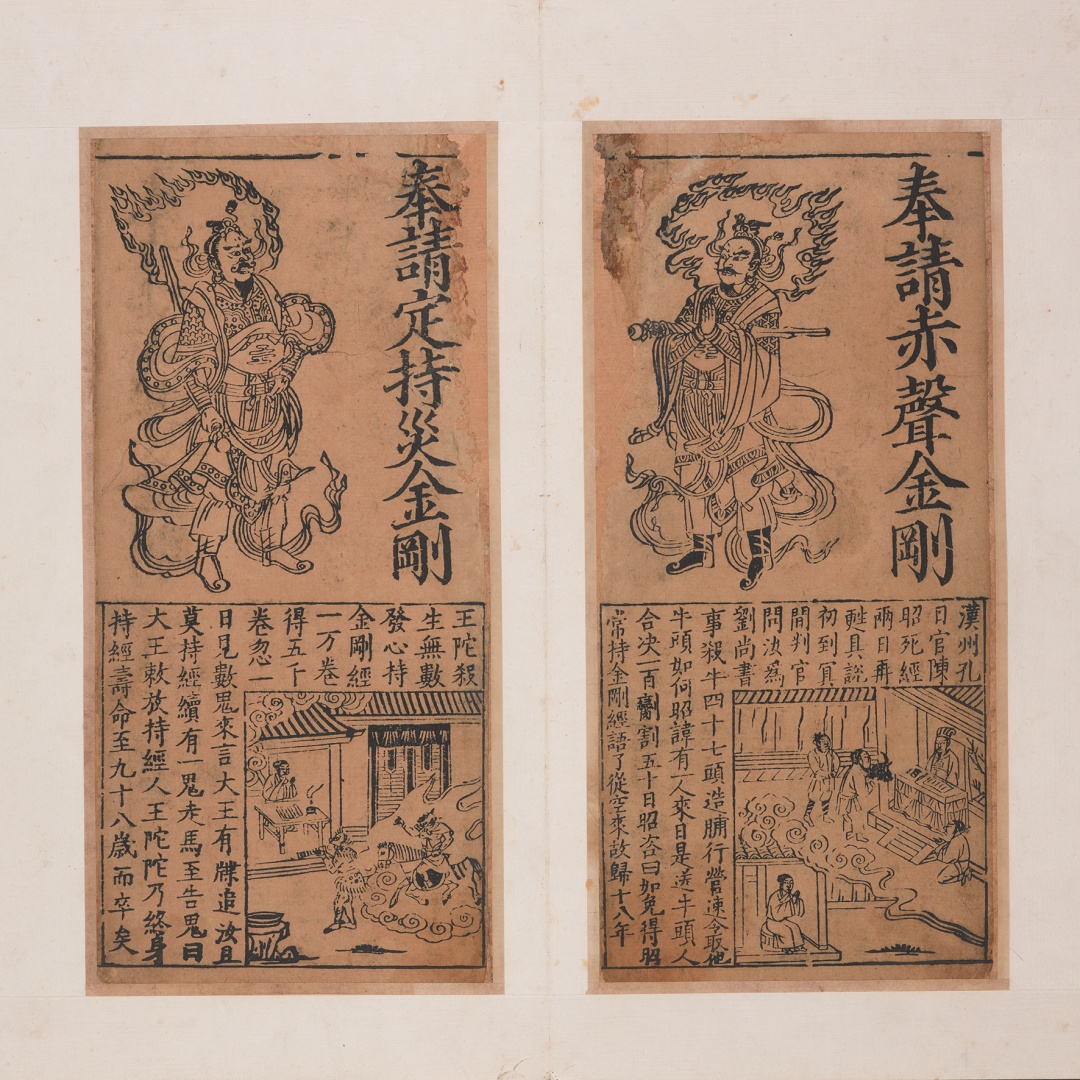 奉請赤聲金剛
漢州孔
目官陳
昭死經
兩日再
甦具說
初到冥
間判官
問汝為
劉尚書
事殺牛四十七頭造脯行營速令取他
牛頭如何昭諱有一人來曰是送牛頭人
合决一百割五十日昭咨曰如免得昭
常持金剛經語了從空來放歸十八年
奉請定持災金剛
王陀殺
生無數
發心持
金剛經
一万卷
得五千
卷忽一
日見數鬼來言大王有牒追汝且
莫持經續有一鬼走馬至告鬼曰
大王敕放持經人王陀陀乃終身
持經壽命至九十八歲而卒矣